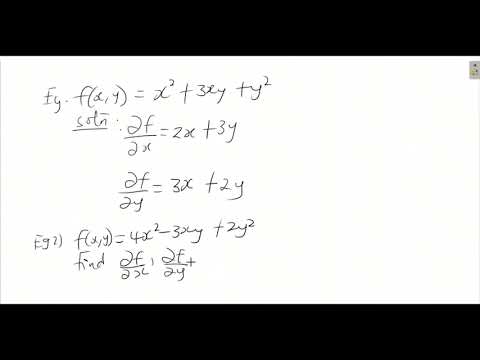 Eg. f(x,y) = x² + 3xy + y²
soln : ∂f/∂x = 2x + 3y
∂f/∂y = 3x + 2y
Eg2) f(x,y) = 4x² - 3xy + 2y²
Find ∂f/∂x, ∂f/∂y +